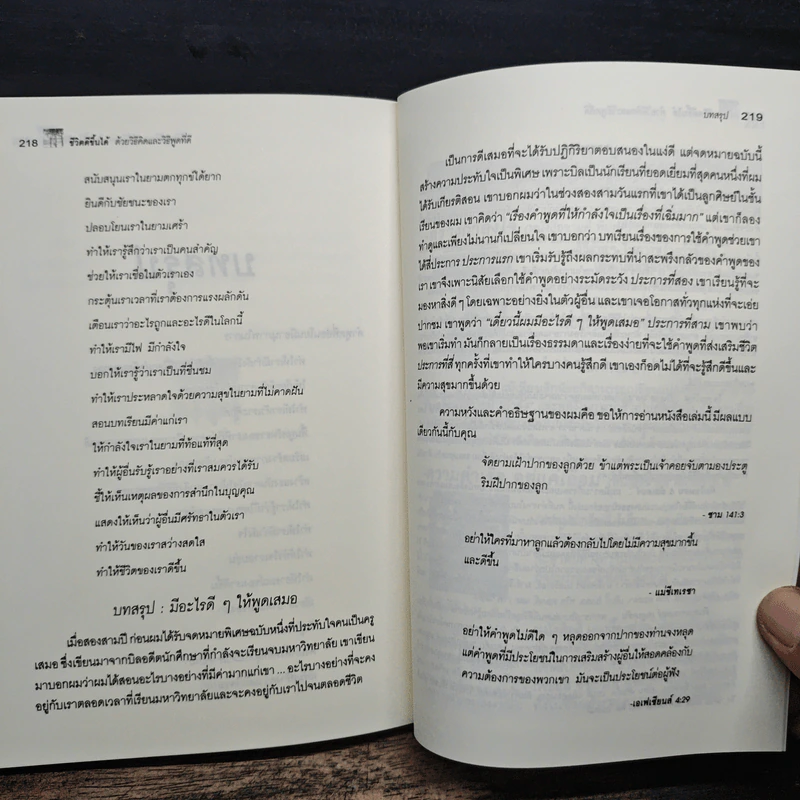 218 ชีวิตดีขึ้นได้ ด้วยวิธีคิดและวิธีพูดที่ดี
สนับสนุนเราในยามตกทุกข์ได้ยาก
ยินดีกับชัยชนะของเรา
ปลอบโยนเราในยามเศร้า
ทำให้เรารู้สึกว่าเราเป็นคนสำคัญ
ช่วยให้เราเชื่อในตัวเราเอง
กระตุ้นเราเวลาที่เราต้องการแรงผลักดัน
เตือนเราว่าอะไรถูกและอะไรดีในโลกนี้
ทำให้เรามีไฟ มีกำลังใจ
บอกให้เรารู้ว่าเราเป็นที่ชื่นชม
ทำให้เราประหลาดใจด้วยความสุขในยามที่ไม่คาดฝัน
สอนบทเรียนมีค่าแก่เรา
ให้กำลังใจเราในยามที่ท้อแท้ที่สุด
ทำให้ผู้อื่นรับรู้เราอย่างที่เราสมควรได้รับ
ชี้ให้เห็นเหตุผลของการสำนึกในบุญคุณ
แสดงให้เห็นว่าผู้อื่นมีศรัทธาในตัวเรา
ทำให้วันของเราสว่างสดใส
ทำให้ชีวิตของเราดีขึ้น
บทสรุป : มีอะไรดี ๆ ให้พูดเสมอ
เมื่อสองสามปี ก่อนผมได้รับจดหมายพิเศษฉบับหนึ่งที่ประทับใจคนเป็นครู
เสมอ ซึ่งเขียนมาจากบิลอดีตนักศึกษาที่กำลังจะเรียนจบมหาวิทยาลัย เขาเขียน
มาบอกผมว่าผมได้สอนอะไรบางอย่างที่มีค่ามากแก่เขา ... อะไรบางอย่างที่จะคง
อยู่กับเราตลอดเวลาที่เรียนมหาวิทยาลัยและจะคงอยู่กับเราไปจนตลอดชีวิต
บทสรุป 219
เป็นการดีเสมอที่จะได้รับปฏิกิริยาตอบสนองในแง่ดี แต่จดหมายฉบับนี้
สร้างความประทับใจเป็นพิเศษ เพราะบิลเป็นนักเรียนที่ยอดเยี่ยมที่สุดคนหนึ่งที่ผม
ได้รับเกียรติสอน เขาบอกผมว่าในช่วงสองสามวันแรกที่เขาได้เป็นลูกศิษย์ในชั้น
เรียนของผม เขาคิดว่า “เรื่องคำพูดที่ให้กำลังใจเป็นเรื่องที่เฉิ่มมาก” แต่เขาก็ลอง
ทำดูและเพียงไม่นานก็เปลี่ยนใจ เขาบอกว่า บทเรียนเรื่องของการใช้คำพูดช่วยเขา
ได้สี่ประการ ประการแรก เขาเริ่มรับรู้ถึงผลกระทบที่น่าสะพรึงกลัวของคำพูดของ
เรา เขาจึงเพาะนิสัยเลือกใช้คำพูดอย่างระมัดระวัง ประการที่สอง เขาเรียนรู้ที่จะ
มองหาสิ่งดี ๆ โดยเฉพาะอย่างยิ่งในตัวผู้อื่น และเขาเจอโอกาสทั่วทุกแห่งที่จะเอ่ย
ปากชม เขาพูดว่า “เดี๋ยวนี้ผมมีอะไรดี ๆ ให้พูดเสมอ” ประการที่สาม เขาพบว่า
พอเขาเริ่มทำ มันก็กลายเป็นเรื่องธรรมดาและเรื่องง่ายที่จะใช้คำพูดที่ส่งเสริมชีวิต
ประการที่สี่ ทุกครั้งที่เขาทำให้ใครบางคนรู้สึกดี เขาเองก็อดไม่ได้ที่จะรู้สึกดีขึ้นและ
มีความสุขมากขึ้นด้วย
ความหวังและคำอธิษฐานของผมคือ ขอให้การอ่านหนังสือเล่มนี้ มีผลแบบ
เดียวกันนี้กับคุณ
จัดยามเฝ้าปากของลูกด้วย ข้าแต่พระเป็นเจ้าคอยจับตามองประตู
ริมฝีปากของลูก
- ซาม 141:3
อย่าให้ใครที่มาหาลูกแล้วต้องกลับไปโดยไม่มีความสุขมากขึ้น
และดีขึ้น
- แม่ชีเทเรซา
อย่าให้คำพูดไม่ดีใด ๆ หลุดออกจากปากของท่านจงหลุด
แต่คำพูดที่มีประโยชน์ในการเสริมสร้างผู้อื่นให้สอดคล้องกับ
ความต้องการของพวกเขา มันจะเป็นประโยชน์ต่อผู้ฟัง
-เอเฟเซียนส์ 4:29